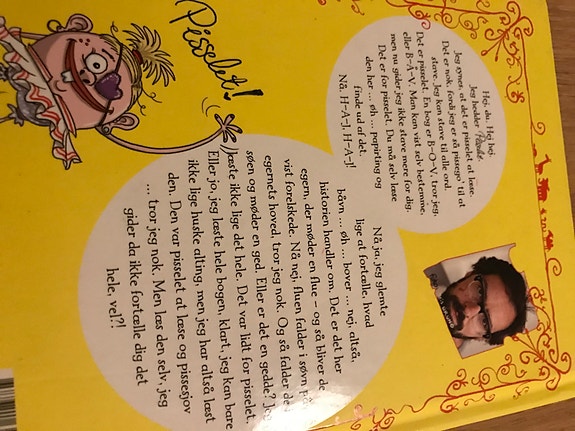 Hej, du. Hej hej.
Jeg hedder Pisselet.
Jeg synes, at det er pisselet at læse.
Det er nok, fordi jeg er så pissegod til at
stave. Jeg kan stave til alle ord.
Det er pisselet. En bog er B-O-V, tror jeg,
eller B-Å-V. Man kan vist selv bestemme,
men nu gider jeg ikke stave mere for dig.
Det er for pisselet. Du må selv læse
den her ... øh ... papirting og
finde ud af det.
Nå, H-A-J, H-A-J!
Pisselet!
Nå ja, jeg glemte
lige at fortælle, hvad
historien handler om. Det er det her
båvn ... øh ... hover ... nej, altså,
egern, der møder en flue – og så bliver de
vist forelskede. Nå nej, fluen falder i søvn på
egernets hoved, tror jeg nok. Og så falder de i
søen og møder en ged. Eller er det en gedde? Jeg
læste ikke lige det hele. Det var lidt for pisselet.
Eller jo, jeg læste hele bogen, klart, jeg kan bare
ikke lige huske alting, men jeg har altså læst
den. Den var pisselet at læse og pissesjov
... tror jeg nok. Men læs den selv, jeg
gider da ikke fortælle dig det
hele, vel?!